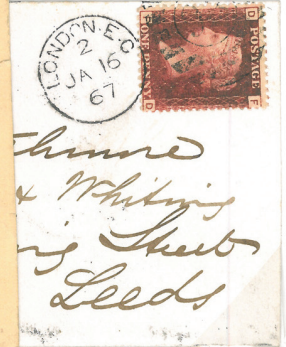 LONDON·E.C
2
JA 16
67
D POSTAGE F
F ONE PENNY D
& Whiting
Street
Leeds